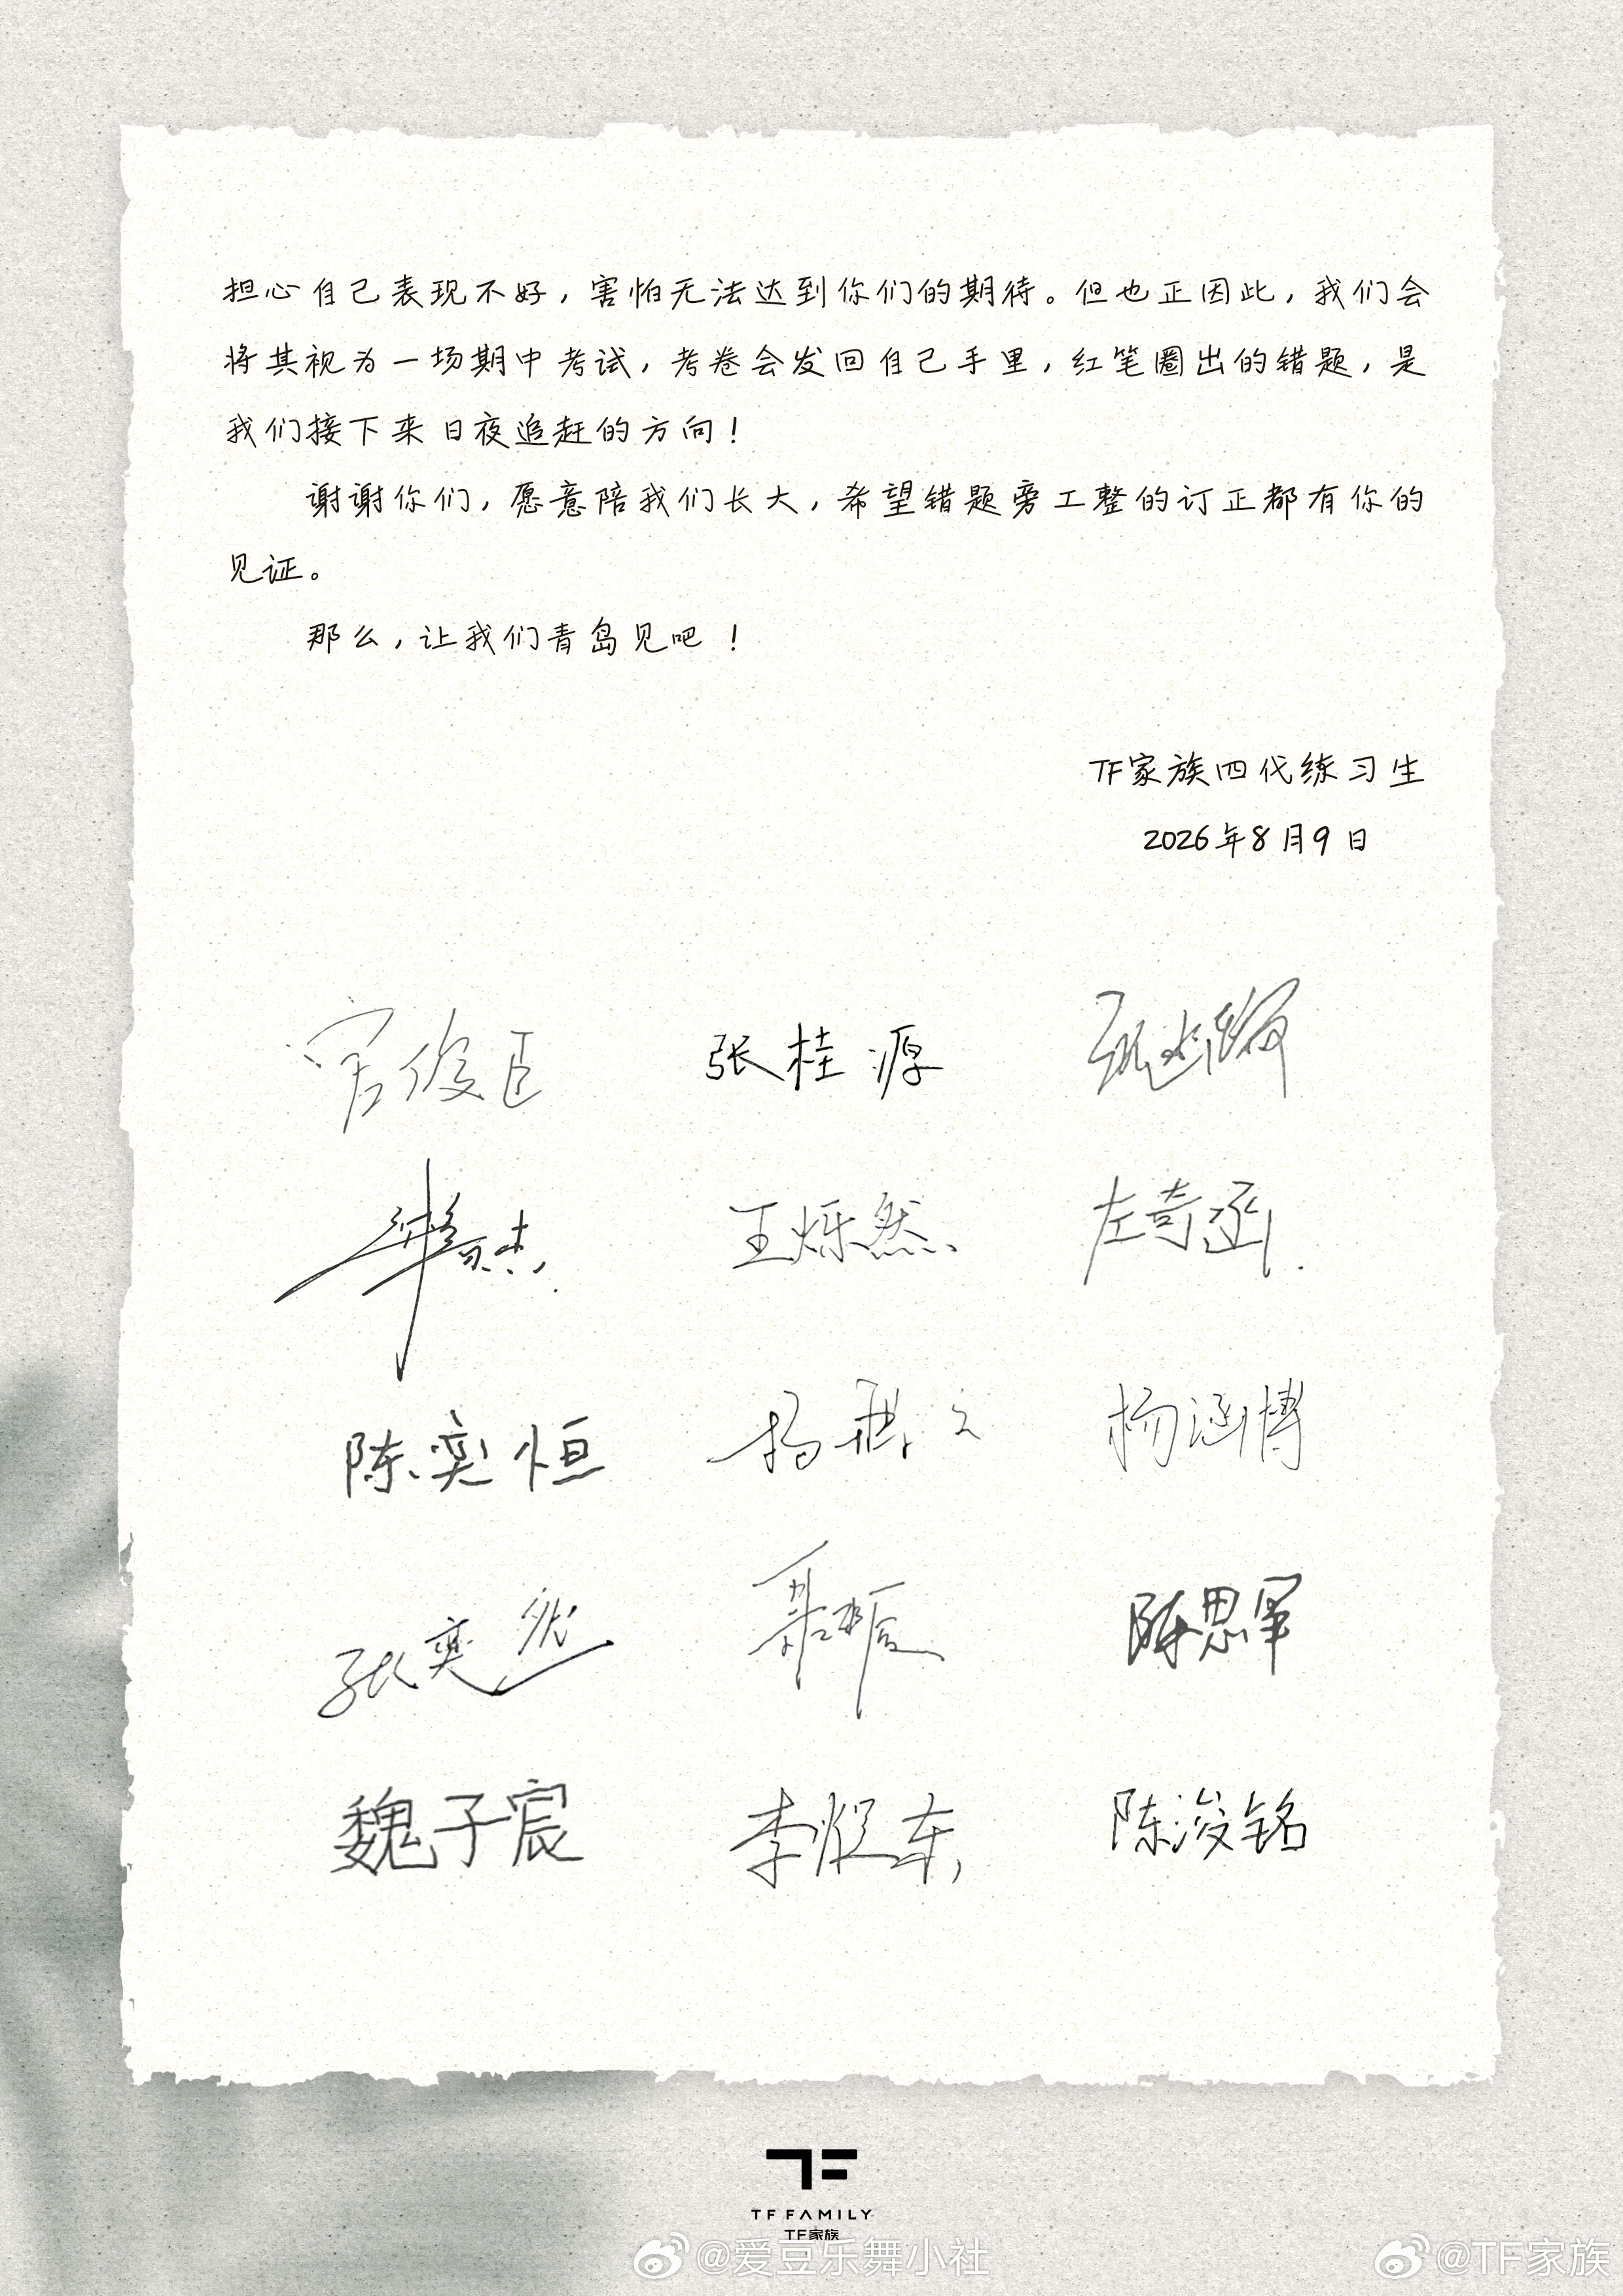 担心自己表现不好，害怕无法达到你们的期待。但也正因此，我们会
将其视为一场期中考试，考卷会发回自己手里，红笔圈出的错题，是
我们接下来日夜追赶的方向！
谢谢你们，愿意陪我们长大，希望错题旁工整的订正都有你的
见证。
那么，让我们青岛见吧！
TF家族四代练习生
2026年8月9日
官俊臣 张桂源
王烁然 左奇函
陈奕恒 杨涵博
张奕然 陈思罕
魏子宸 李煜东 陈浚铭
TF FAMILY
TF家族
@爱豆乐舞小社 @TF家族